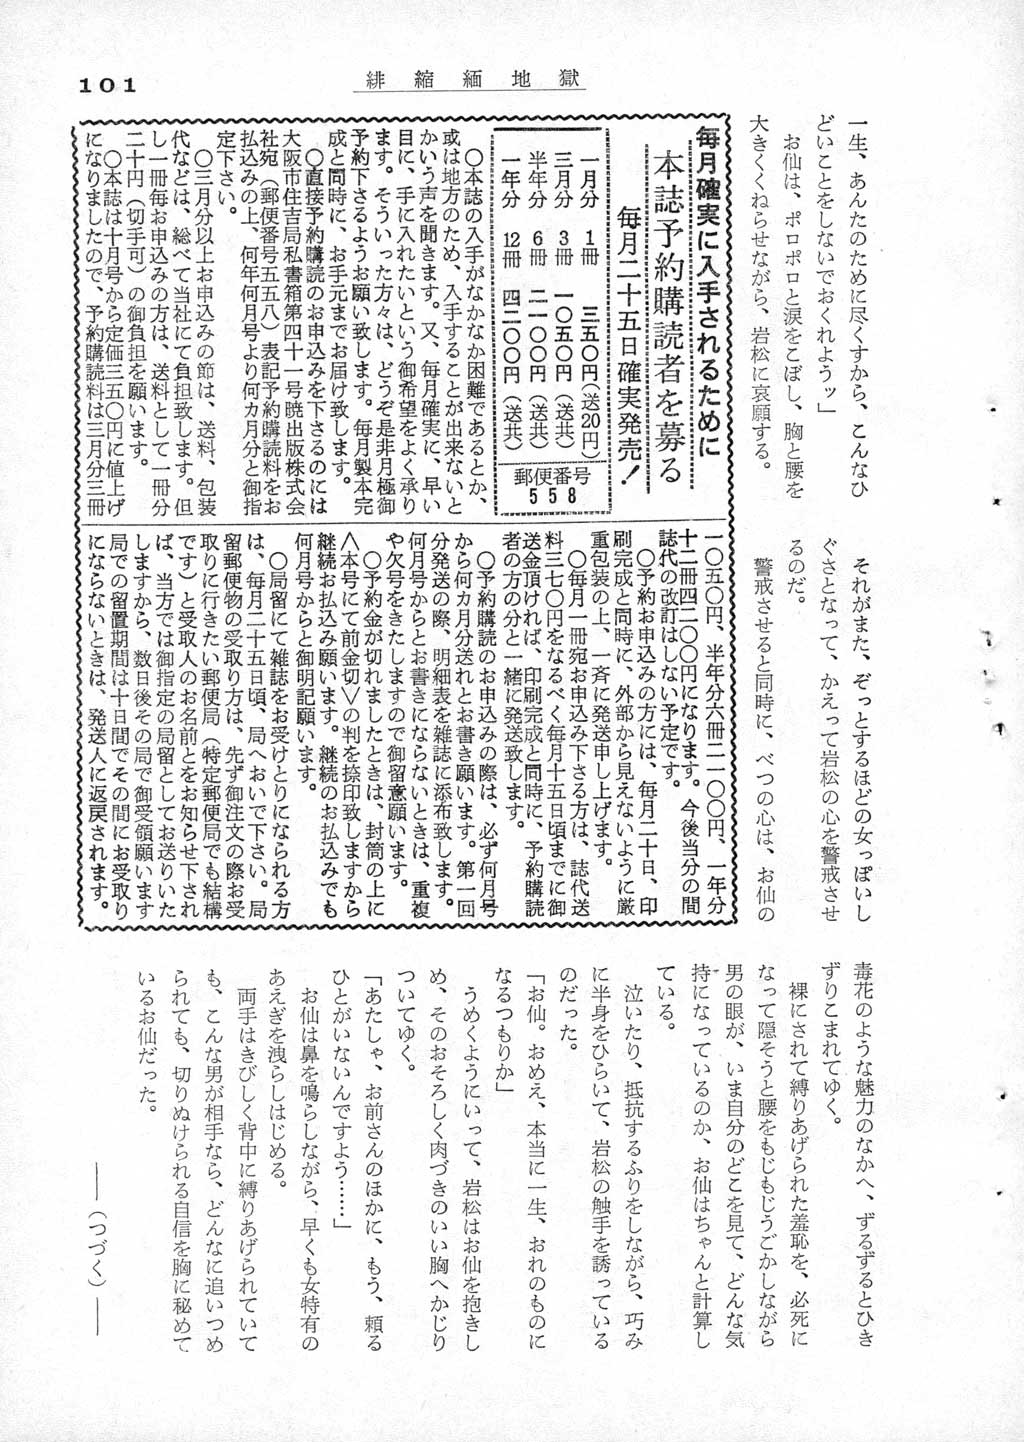 101
緋縮緬地獄
一生、あんたのために尽くすから、こんなひ
どいことをしないでおくれようッ」
お仙は、ポロポロと涙をこぼし、胸と腰を
大きくくねらせながら、岩松に哀願する。
それがまた、ぞっとするほどの女っぽいし
ぐさとなって、かえって岩松の心を警戒させ
るのだ。
警戒させると同時に、べつの心は、お仙の
毎月確実に入手されるために
本誌予約購読者を募る
毎月二十五日確実発売!
一月分 1冊 三五〇円(送20円)
三月分 3冊 一〇五〇円(送共)
半年分 6冊 二一〇〇円(送共)
一年分 12冊 四二〇〇円(送共)
郵便番号
558
〇本誌の入手がなかなか困難であるとか、
或は地方のため、入手することが出来ないと
かいう声を聞きます。又、毎月確実に、早い
目に、手に入れたいという御希望をよく承り
ます。そういった方々は、どうぞ是非月極御
予約下さるようお願い致します。毎月製本完
成と同時に、お手元までお届け致します。
〇直接予約購読のお申込みを下さるのには
大阪市住吉局私書箱第四十一号暁出版株式会
社宛(郵便番号五五八)表記予約購読料をお
払込みの上、何年何月号より何カ月分と御指
定下さい。
〇三月分以上お申込みの節は、送料、包装
代などは、総べて当社にて負担致します。但
し一冊毎お申込みの方は、送料として一冊分
二十円(切手可)の御負担を願います。
〇本誌は十月号から定価三五〇円に値上げ
になりましたので、予約購読料は三月分三冊
一〇五〇円、半年分六冊二一〇〇円、一年分
十二冊四二〇〇円になります。今後当分の間
誌代の改訂はしない予定です。
〇予約お申込みの方には、毎月二十日、印
刷完成と同時に、外部から見えないように厳
重包装の上、一斉に発送申し上げます。
〇毎月一冊宛お申込み下さる方は、誌代送
料三七〇円をなるべく毎月十五日頃までに御
送金頂ければ、印刷完成と同時に、予約購読
者の方の分と一緒に発送致します。
〇予約購読のお申込みの際は、必ず何月号
から何カ月分送れとお書き願います。第一回
分発送の際、明細表を雑誌に添布致します。
何月号からとお書きにならないときは、重複
や欠号をきたしますので御留意願います。
〇予約金が切れましたときは、封筒の上に
＜本号にて前金切＞の判を捺印致しますから
継続お払込み願います。継続のお払込みでも
何月号からと御明記願います。
〇局留にて雑誌をお受けとりになられる方
は、毎月二十五日頃、局へおいで下さい。局
留郵便物の受取り方は、先ず御注文の際お受
取りに行きたい郵便局(特定郵便局でも結構
です)と受取人のお名前とをお知らせ下され
ば、当方では御指定の局留としてお送りいた
しますから、数日後その局で御受領願います
局での留置期間は十日間でその間にお受取り
にならないときは、発送人に返戻されます。
毒花のような魅力のなかへ、ずるずるとひき
ずりこまれてゆく。
裸にされて縛りあげられた羞恥を、必死に
なって隠そうと腰をもじもじうごかしながら
男の眼が、いま自分のどこを見て、どんな気
持になっているのか、お仙はちゃんと計算し
ている。
泣いたり、抵抗するふりをしながら、巧み
に半身をひらいて、岩松の触手を誘っている
のだった。
「お仙。おめえ、本当に一生、おれのものに
なるつもりか」
うめくようにいって、岩松はお仙を抱きし
め、そのおそろしく肉づきのいい胸へかじり
ついてゆく。
「あたしゃ、お前さんのほかに、もう、頼る
ひとがいないんですよう……」
お仙は鼻を鳴らしながら、早くも女特有の
あえぎを洩らしはじめる。
両手はきびしく背中に縛りあげられていて
も、こんな男が相手なら、どんなに追いつめ
られても、切りぬけられる自信を胸に秘めて
いるお仙だった。
――(つづく)――